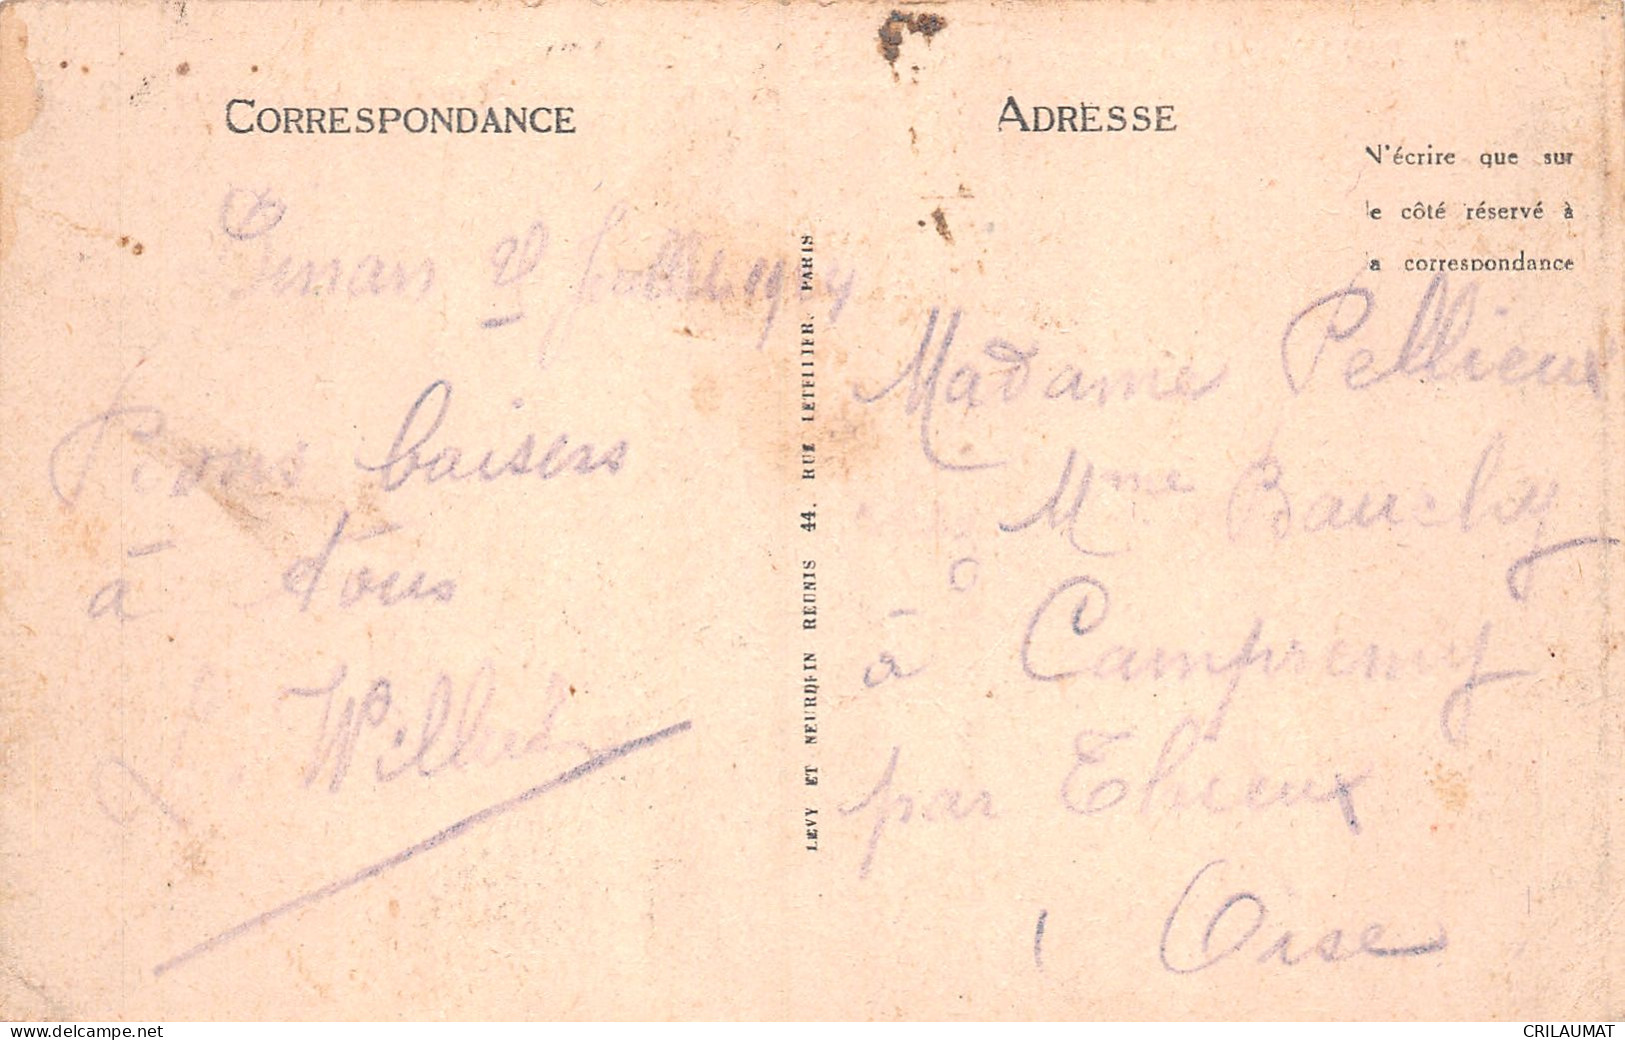 CORRESPONDANCE
Dinan 28 Juillet 1924
baisers
à tous
ADRESSE
N'écrire que sur
le côté réservé à
la correspondance
Madame Pellieux
Mme Bauchy
à Campremy
par Thieux
Oise
LEVY ET NEURDEIN REUNIS 44. RUE LETELLIER. PARIS
www.delcampe.net
CRILAUMAT